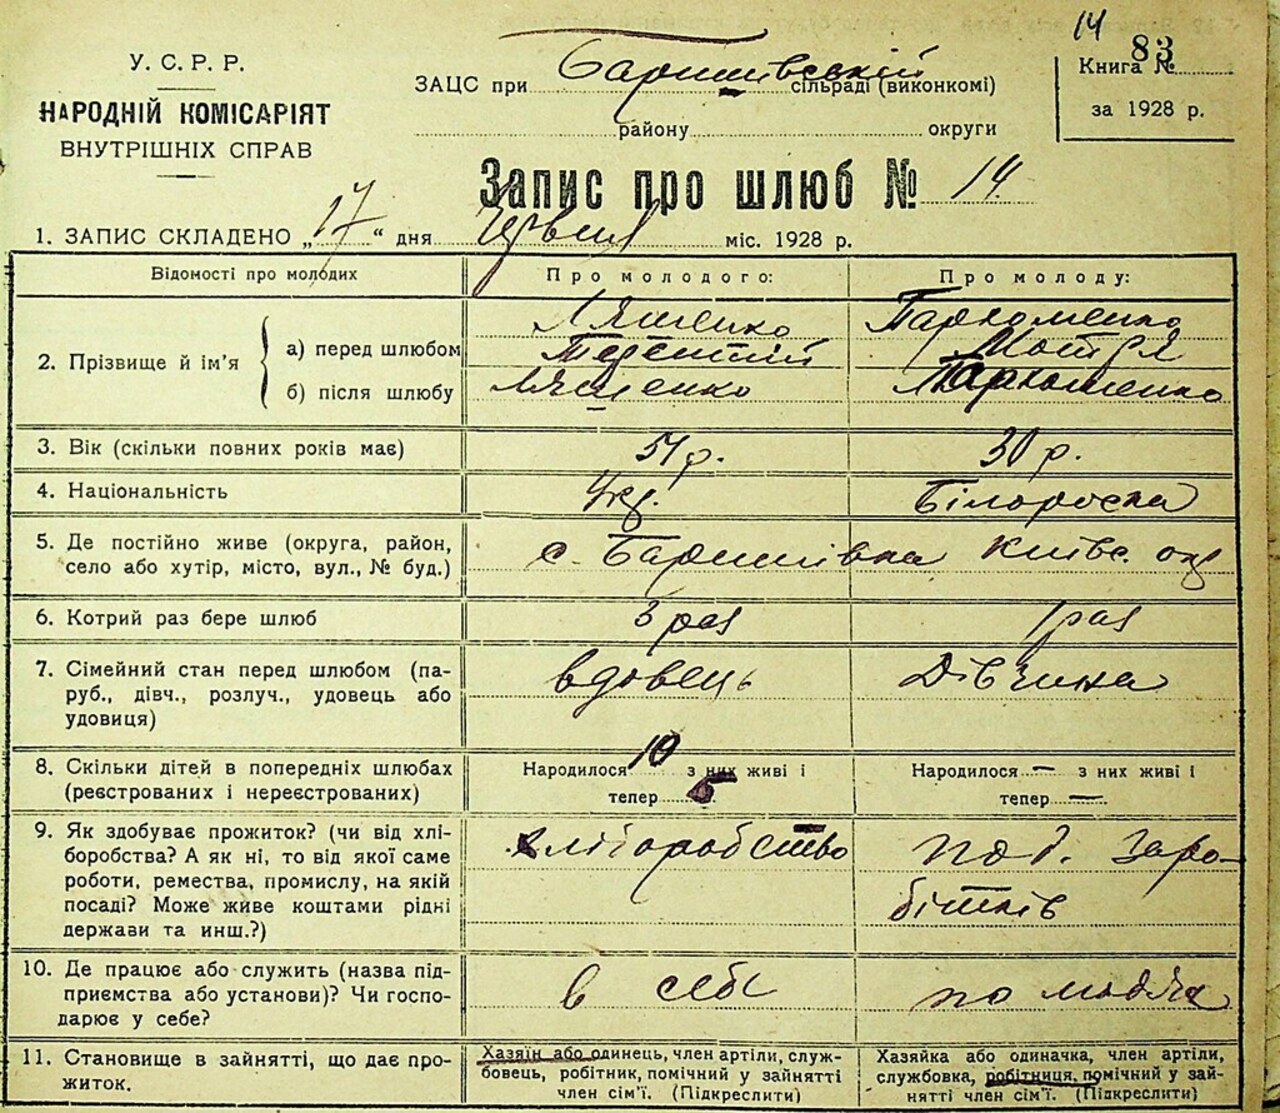 14
83
У. С. Р. Р.
НАРОДНІЙ КОМІСАРІЯТ
ВНУТРІШНІХ СПРАВ
ЗАЦС при Баришивській сільраді (виконкомі)
району округи
Книга №
за 1928 р.
Запис про шлюб № 14.
1. ЗАПИС СКЛАДЕНО „17“ дня Червня міс. 1928 р.
Відомості про молодих
Про молодого:
Про молоду:
2. Прізвище й ім'я
а) перед шлюбом
б) після шлюбу
Ляшенко
Терентій
Ляшенко
Пархоменко
Мотря
Пархоменко
3. Вік (скільки повних років має)
51 р.
30 р.
4. Національність
Укр.
Білороска
5. Де постійно живе (округа, район,
село або хутір, місто, вул., № буд.)
с. Баришівка Київс. окр
6. Котрий раз бере шлюб
3 раз
1 раз
7. Сімейний стан перед шлюбом (па-
руб., дівч., розлуч., удовець або
удовиця)
вдовець
Дівчина
8. Скільки дітей в попередніх шлюбах
(реєстрованих і нереєстрованих)
Народилося 10 з них живі і
тепер 5
Народилося — з них живі і
тепер —
9. Як здобуває прожиток? (чи від хлі-
боробства? А як ні, то від якої саме
роботи, ремества, промислу, на якій
посаді? Може живе коштами рідні
держави та инш.?)
хліборобство
под. заро-
бітків
10. Де працює або служить (назва під-
приємства або установи)? Чи госпо-
дарює у себе?
в себе
по людях
11. Становище в зайнятті, що дає про-
житок.
Хазяїн або одинець, член артіли, служ-
бовець, робітник, помічний у зайнятті
член сім'ї. (Підкреслити)
Хазяйка або одиначка, член артіли,
службовка, робітниця, помічний у зай-
нятті член сім'ї. (Підкреслити)